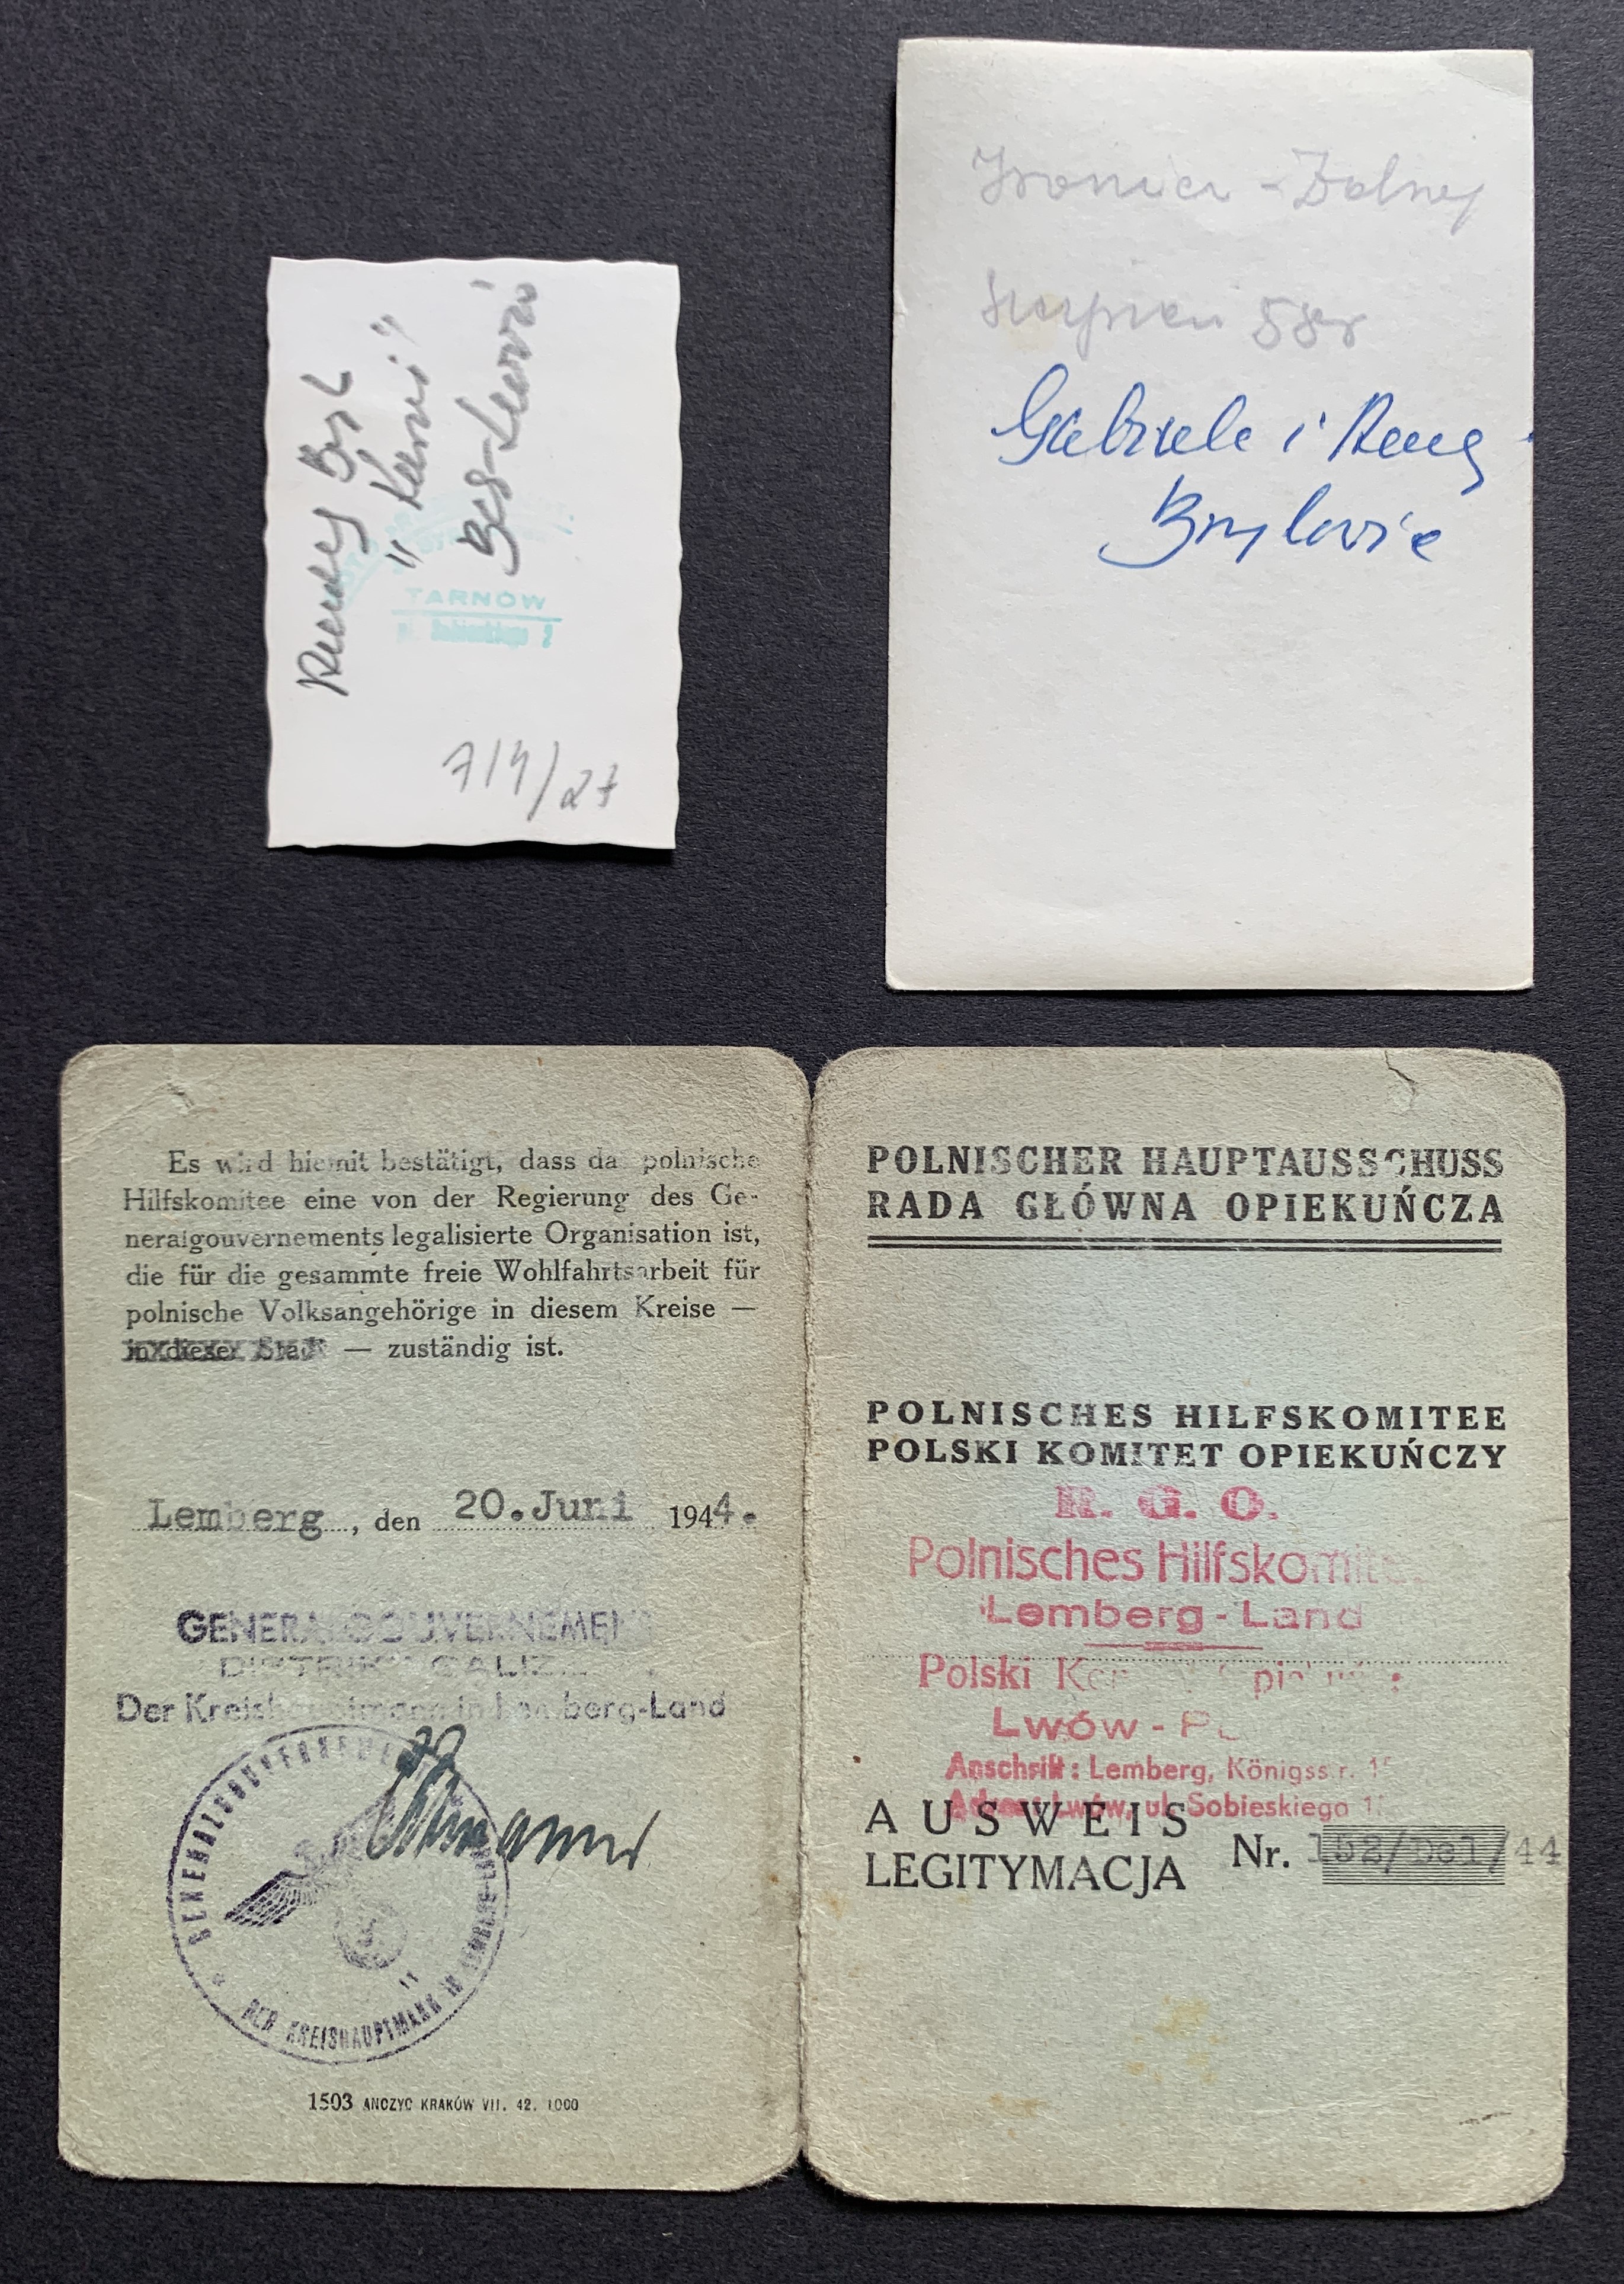 TARNÓW
7/4/27
Sierpień 58r
Gabriela i
Es wird hiemit bestätigt, dass da polnische
Hilfskomitee eine von der Regierung des Ge-
neralgouvernements legalisierte Organisation ist,
die für die gesammte freie Wohlfahrtsarbeit für
polnische Volksangehörige in diesem Kreise —
in dieser Stadt — zuständig ist.
Lemberg, den 20.Juni 1944.
GENERALGOUVERNEMENT
DISTRIKT GALIZIEN
Der Kreishauptmann in Lemberg-Land
GENERALGOUVERNEMENT
DER KREISHAUPTMANN IN LEMBERG-LAND
1503 ANCZYC KRAKÓW VII. 42. 1000
POLNISCHER HAUPTAUSSCHUSS
RADA GŁÓWNA OPIEKUŃCZA
POLNISCHES HILFSKOMITEE
POLSKI KOMITET OPIEKUŃCZY
R. G. O.
Polnisches Hilfskomitee
Lemberg - Land
Polski
Lwów -
Anschrift: Lemberg, Königsstr.
Adres: Lwów, ul. Sobieskiego
AUSWEIS
LEGITYMACJA Nr. 192/Del/44